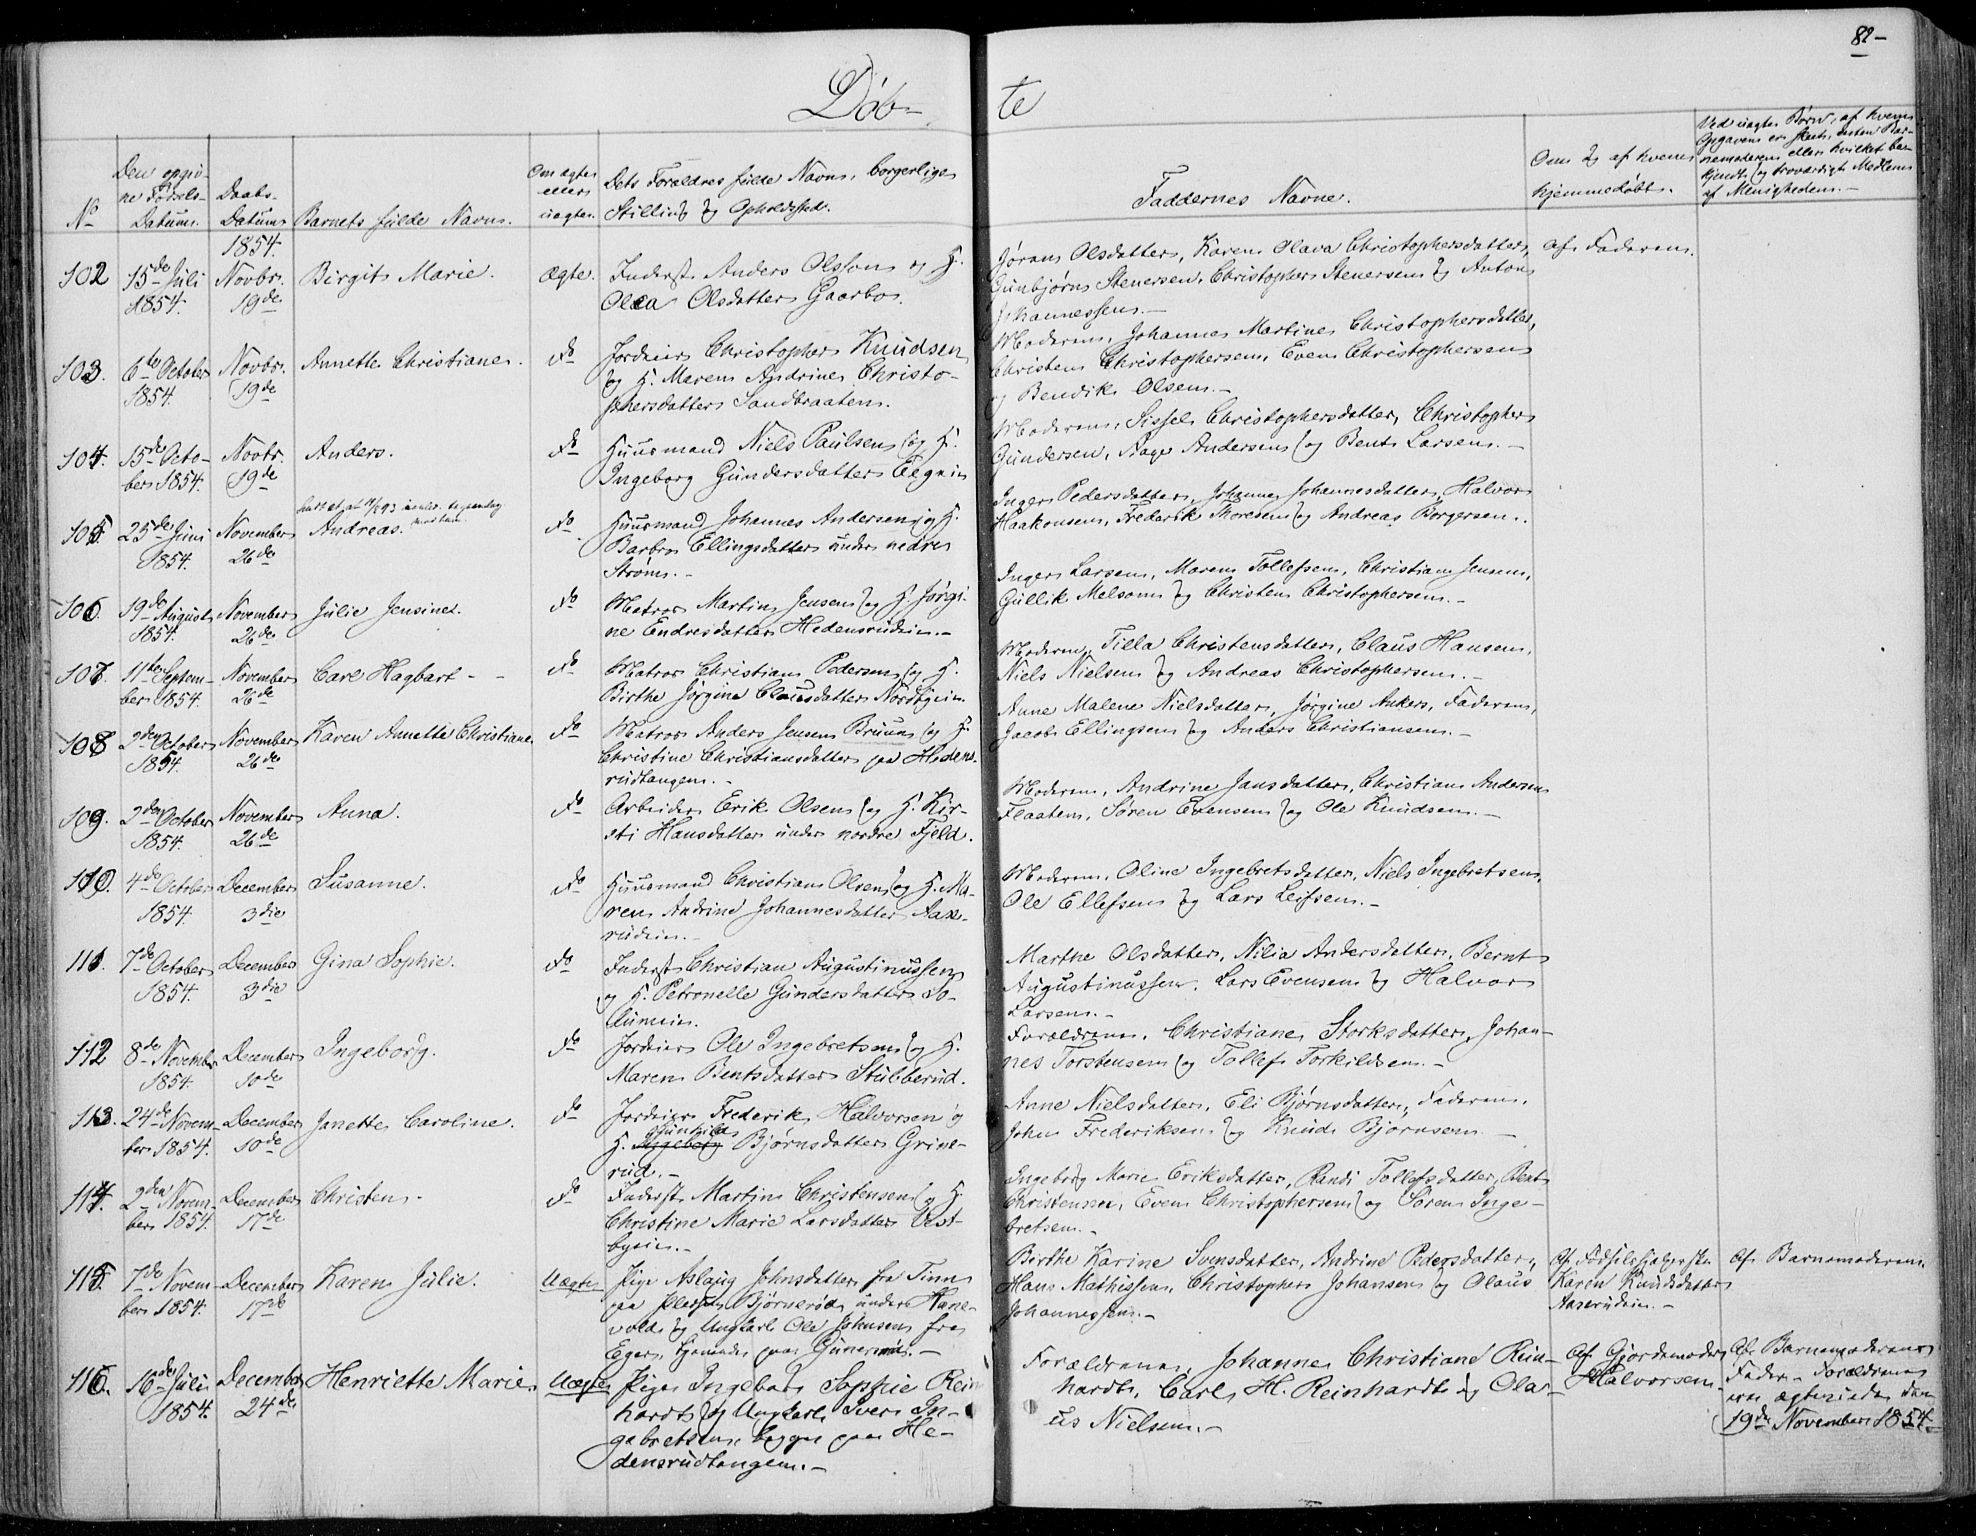 82-
Døb-
te
No
Den opgiv-
ne Fødsels-
Datum.
Daabs-
Datum
Barnets fulde Navn.
Om ægte
eller
uægte.
Dets Forældres fulde Navn, borgerlige
Stilling og Opholdssted.
Faddernes Navne.
Om og af hvem
hjemmedøbt.
Ved uægte Børn, af hvem
Opgaven er skeet, enten Bar-
nemoderen eller hvilket be-
kjendt og troværdigt Medlem
af Menigheden.-
1854.
102
15de Juli
1854.
Novbr.
19de
Birgit Marie.
Ægte.
Inderst Anders Olsson og H.
Olea Olsdatter Gaarbo.
Jøran Olsdatter, Karen Olava Christophersdatter,
Gunbjørn Stenersen, Christopher Stenersen og Anton
Johannessen.-
af Faderen.
103.
6te October
1854.
Novbr.
19de
Annette Christiane.
do
Jordeier Christopher Knudsen
og H. Maren Andrine Christo-
phersdatter Sandbraaten.
Moderen, Johanne Martine Christophersdatter,
Christen Christophersen, Even Christophersen
og Bendik Olsen.-
104.
15de Octo-
ber 1854.
Novbr.
19de
Anders.
do
Huusmand Niels Paulsen og H.
Ingeborg Gundersdatter Eegein
Moderen, Sissel Christophersdatter, Christopher
Gundersen, Aage Andersen og Bent Larsen.-
105.
25de Juni
1854.
November
26de
Andreas.
do
Huusmand Johannes Andersen og H.
Barbro Ellingsdatter under nedre
Strøm.-
Inger Pedersdatter, Johanne Johannesdatter, Halvor
Haakonsen, Frederik Thoresen og Andreas Borgersen.
106.
19de August
1854.
November
26de
Julie Jensine.
do
Matros Martin Jensen og H. Jørgi-
ne Endresdatter Hedensrudein.-
Inger Larsen, Maren Tollefsen, Christian Jensen,
Gullik Melsom og Christen Christophersen.-
107.
11te Septem-
ber 1854.
November
26de
Carl Hagbart - -
do
Matros Christian Pedersen og H.
Birthe Jørgine Clausdatter Nordbyein.
Moderen, Tilla Christensdatter, Claus Hansen,
Niels Nielsen og Andreas Christophersen.-
108
2den October
1854.
November
26de
Karen Annette Christiane.
do
Matros Anders Jensen Bruun og H.
Christine Christiansdatter paa Hedens-
rudtangen.-
Anne Malene Nielsdatter, Jørgine Anker, Faderen,
Jacob Ellingsen og Anders Christiansen.-
109.
2den October
1854.
November
26de
Anna.
do
Arbeider Erik Olsen og H. Kir-
sti Hansdatter under nordre Fjeld.
Moderen, Andrine Jansdatter, Christian Andersen
Flaaten, Søren Evensen og Ole Knudsen.-
110.
4de October
1854
December
3die
Susanne.
do
Huusmand Christian Olsen og H. Ma-
ren Andrine Johannesdatter Aase-
rudein.-
Moderen, Oline Ingebretsdatter, Niels Ingebretsen,
Ole Ellefsen og Lars Leifsen.-
111.
7de October
1854.
December
3die
Gina Sophie.
do
Inderst Christian Augustinussen
og H. Petronelle Gundersdatter So-
Marthe Olsdatter, Nilia Andersdatter, Bernt
Augustinussen, Lars Evensen og Halvor
Larsen.-
112
8de November
1854.
December
10de
Ingeborg.
do
Jordeier Ole Ingebretsen og H.
Maren Bentsdatter Stubberud.
Forældrene, Christiane Storksdatter, Johan-
nes Torstensen og Tollef Torkildsen.-
113.
24de Novem-
ber 1854.
December
10de
Janette Caroline.
do
Jordeier Frederik Halvorsen og
Gunhild
H. Ingeborg Bjørnsdatter Grine-
rud.-
Anne Nielsdatter, Eli Bjørnsdatter, Faderen,
John Frederiksen og Knud Bjørnsen.-
114.
2den Novem-
ber 1854.
December
17de
Christen.
do
Inderst Martin Christensen og H.
Christine Marie Larsdatter Vest-
byein.-
Ingeborg Marie Eriksdatter, Randi Tollefsdatter, Bent
Christensen, Even Christophersen og Søren Inge-
bretsen.-
115.
7de Novem-
ber 1854.
December
17de
Karen Julie.
Uægte
Pige Aslaug Johnsdatter fra Tinn
paa Pladsen Bjørnerød under Hane-
vold og Ungkarl Ole Johnsen fra
Eger, tjenende paa
Birthe Karine Svensdatter, Andrine Pedersdatter,
Hans Mathissen, Christopher Johansen og Olaus
Johannessen.-
Af Fødselshjelpersken
Karen Knudsdatter
Aaserudein.-
Af Barnemoderen.
116.
16de Juli
1854.
December
24de
Henriette Marie
Uægte
Pige Ingeborg Sophie Rein-
hardt og Ungkarl Iver In-
gebretsen, begge paa He-
densrudtangen.-
Forældrene, Johanne Christiane Rein-
hardt, Carl H. Reinhardt og Ola-
us Nielsen.-
Af Gjordemoder
Halvorsen.
Af Barnemoderens
Fader. Forældrene
ere ægteviede den
19de November 1854.-